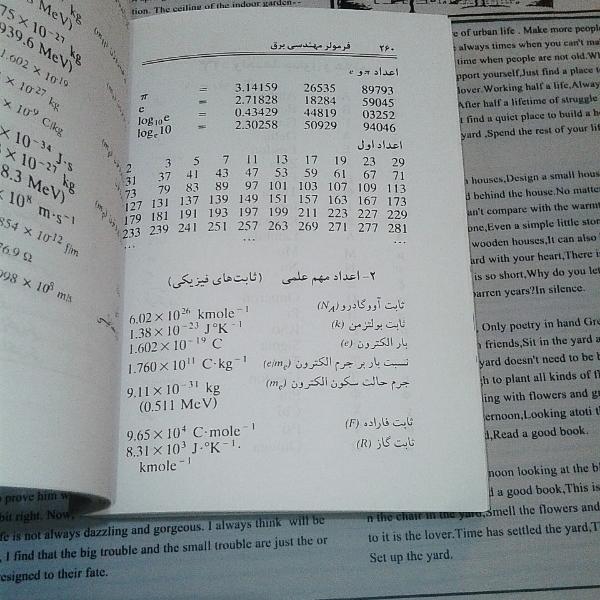 ۲۶۰ فرمولر مهندسی برق
اعداد π و e
π = 3.14159 26535 89793
e = 2.71828 18284 59045
log₁₀e = 0.43429 44819 03252
logₑ10 = 2.30258 50929 94046
اعداد اول
2 3 5 7 11 13 17 19 23 29
31 37 41 43 47 53 59 61 67 71
73 79 83 89 97 101 103 107 109 113
127 131 137 139 149 151 157 163 167 173
179 181 191 193 197 199 211 223 227 229
233 239 241 251 257 263 269 271 277 281
... ... ...
۲- اعداد مهم علمی (ثابت‌های فیزیکی)
ثابت آووگادرو (N_A) 6.02 × 10²⁶ kmole⁻¹
ثابت بولتزمن (k) 1.38 × 10⁻²³ J°K⁻¹
بار الکترون (e) 1.602 × 10⁻¹⁹ C
نسبت بار بر جرم الکترون (e/mₑ) 1.760 × 10¹¹ C·kg⁻¹
جرم حالت سکون الکترون (mₑ) 9.11 × 10⁻³¹ kg
(0.511 MeV)
ثابت فاراده (F) 9.65 × 10⁴ C·mole⁻¹
ثابت گاز (R) 8.31 × 10³ J·°K⁻¹·
kmole⁻¹
kg
MeV)
939.6 MeV)
1.602 × 10⁻¹⁹
kg
C/kg
× 10⁻³⁴ J·s
× 10⁻²⁷ kg
8.3 MeV)
10⁸ m·s⁻¹
10⁻¹² f/m
76.9 Ω
998 × 10⁸ m/s
tion. The ceiling of the indoor garden--
e of urban life . Make more people
always times when you can't ma
time when people are not old.Wh
pport yourself,Just find a place to
lover.Working half a life,Always
After half a lifetime of struggle
t find a quiet place to build a h
yard ,Spend the rest of your lif
houses,Design a small hous
d behind the house.No matter
an't compare with the warmt
one,Even a simple little stor
wooden houses,It can also
ard with your heart,There is
is so short,Why do you let
arren years?In silence.
Only poetry in hand Gre
friends,Sit in the yard a
yard doesn't need to be b
h to plant all kinds of fl
ing with flowers and gr
ernoon,Looking atoti th
d,Read a good book.
noon looking at the bl
d a good book,This is
n the chair in the yard,Smell the flowers and
to it is the lover.Time has settled the yard,T
Set up the yard.
prove him w
bit right. Now,
fe is not always dazzling and gorgeous. I always think will be
, I find that the big trouble and the small trouble are just the or
esigned to their fate.